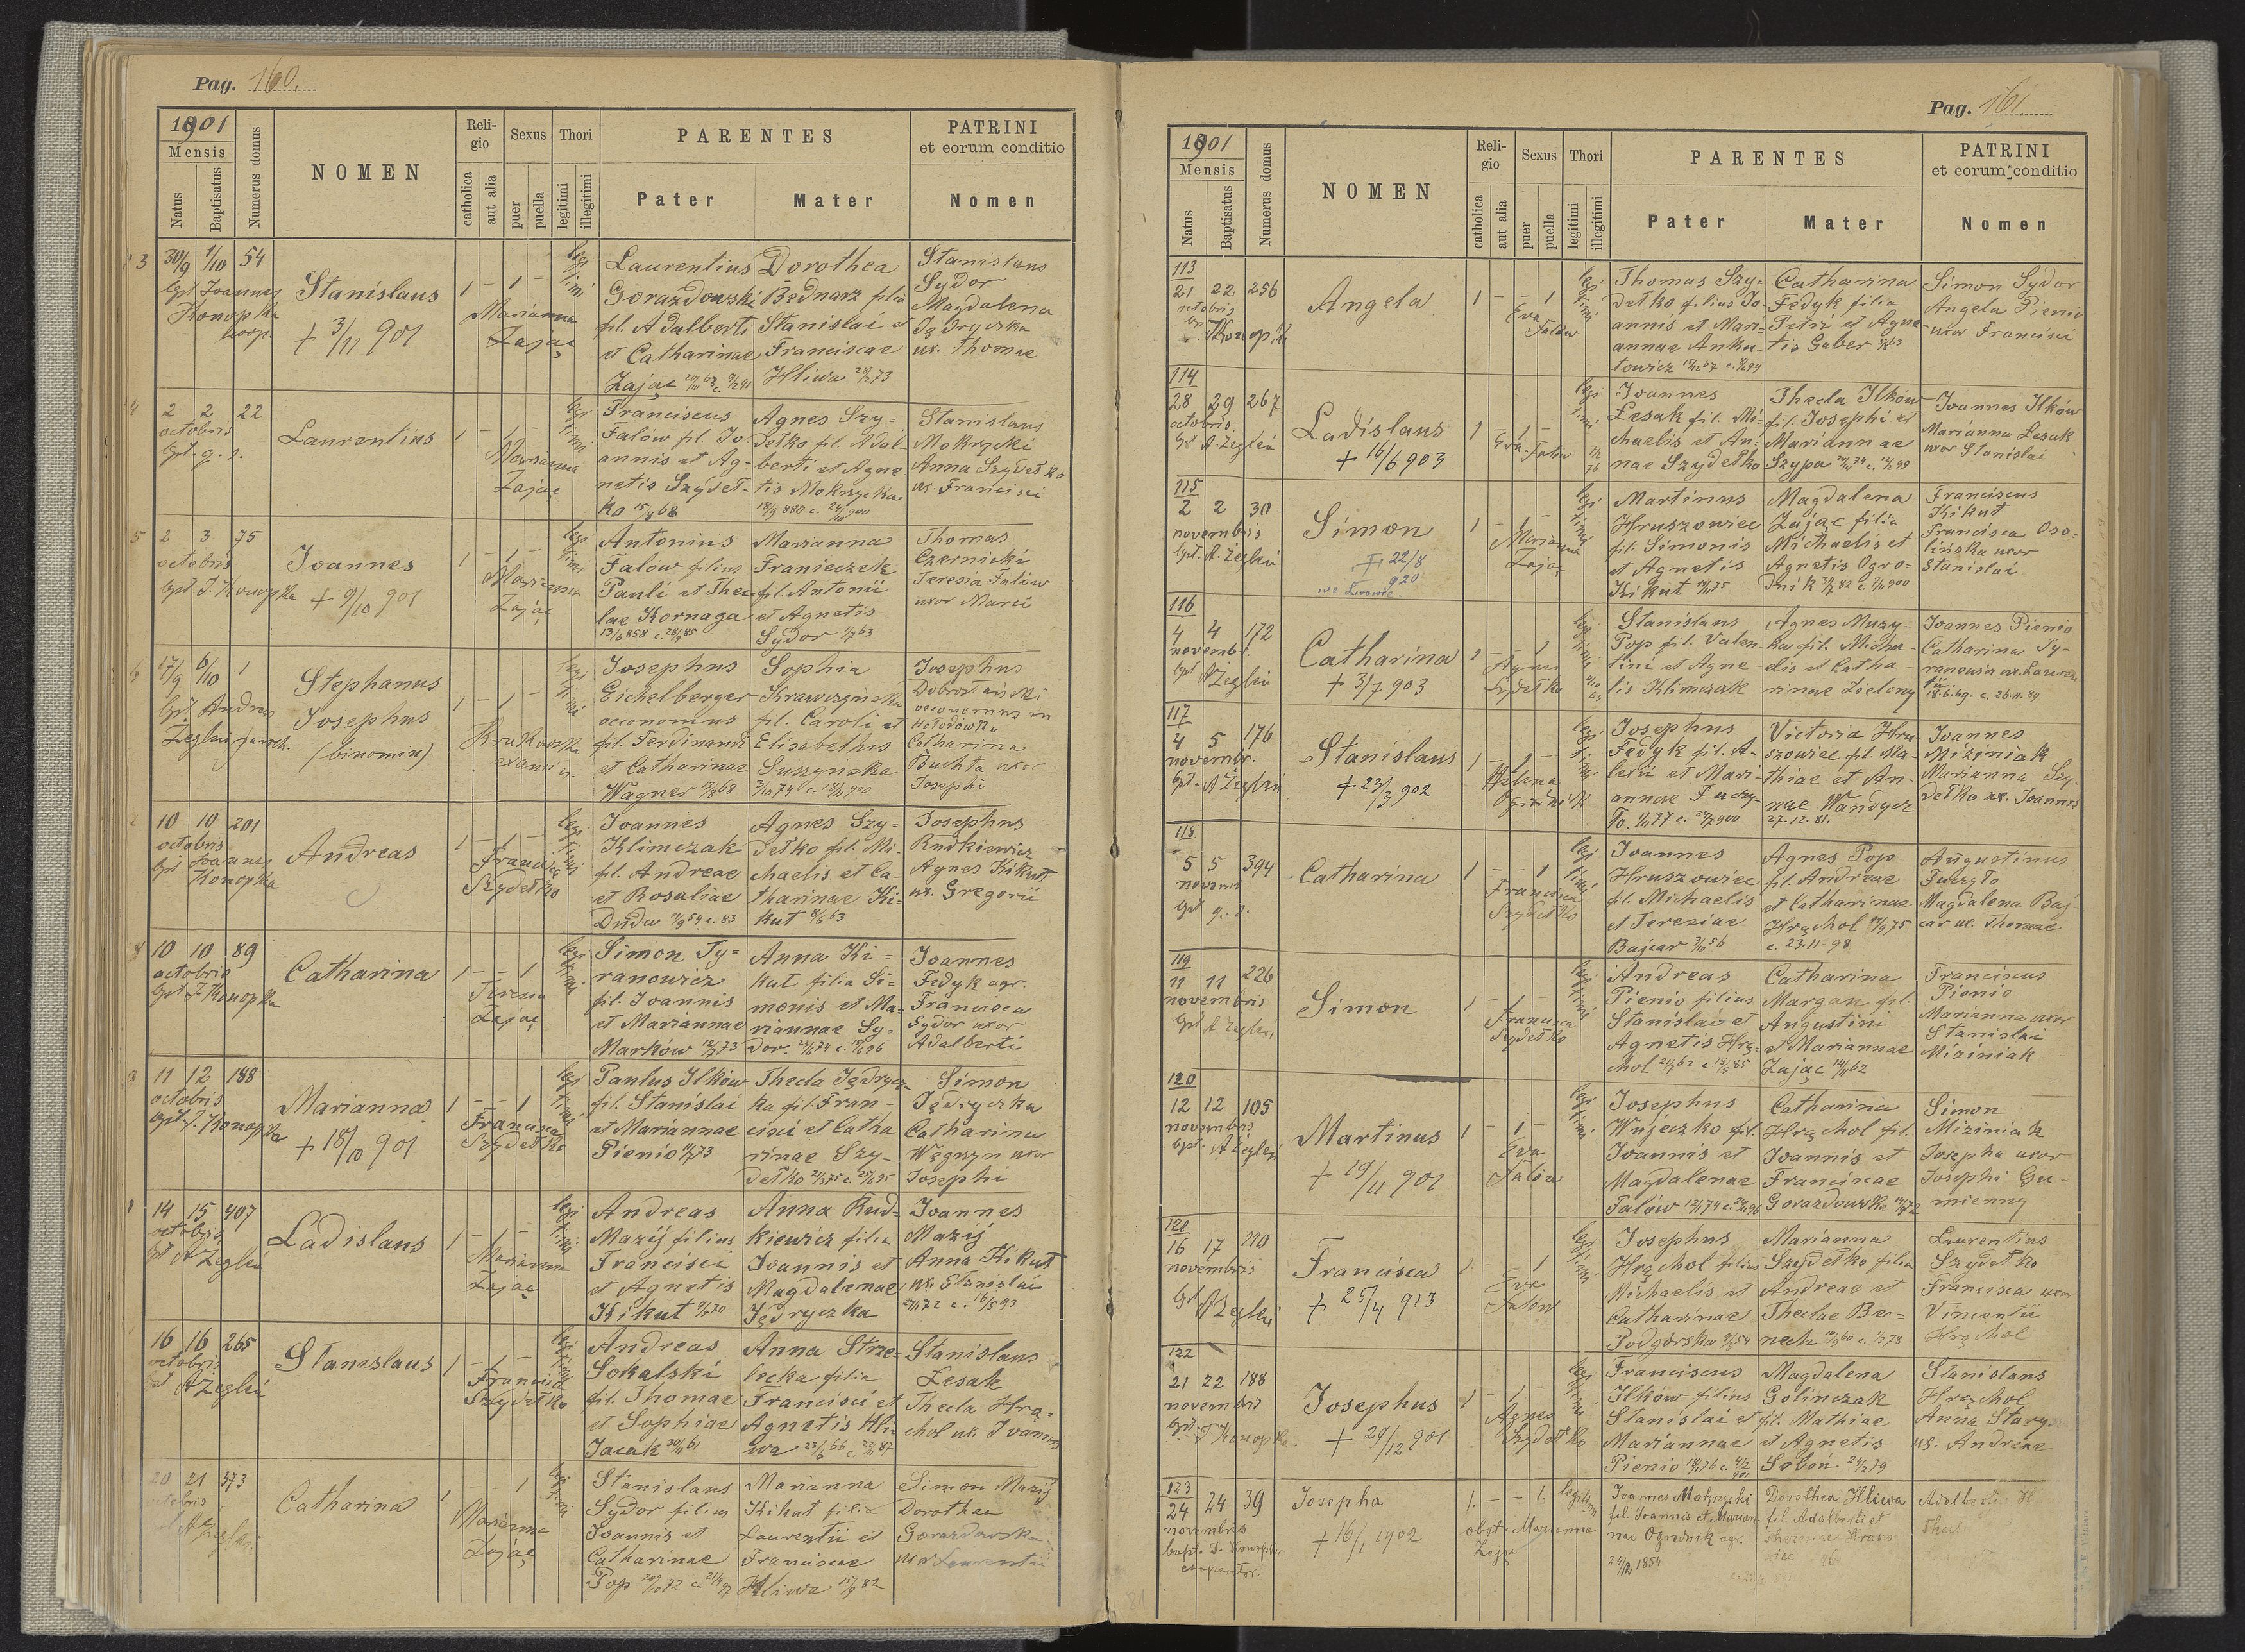 Pag. 160.
1901
Mensis
Natus
Baptisatus
Numerus domus
NOMEN
Religio
catholica
aut alia
Sexus
puer
puella
Thori
legitimi
illegitimi
PARENTES
Pater
Mater
PATRINI
et eorum conditio
Nomen
3 30/9 1/10 54
bpt Joannes
Konopka
coop.
Stanislaus
+ 3/11 901
1 - 1 -
Marianna
Zając
legitimi
Laurentius
Gorazdowski
fil. Adalberti
et Catharinae
Zając
Dorothea
Bednarz filia
Stanislai et
Franciscae
Hliwa
Stanislaus
Sydor
Magdalena
Jędryczka
ux. Thomae
4 2 2 22
octobris
bpt. q. s.
Laurentius
1 - 1 -
Marianna
Zając
legitimi
Franciscus
Falów fil. Jo
annis et Ag-
netis Szydeł-
ko 15/8 68
Agnes Szy=
dełko fil. Adal-
berti et Agne-
tis Mokrzycka
Stanislaus
Mokrzycki
Anna Szydełko
ux. Francisci
5 2 3 75
octobris
bpt J. Konopka
Joannes
+ 9/10 901
1 - 1 -
Marianna
Zając
legitimi
Antonius
Falów filius
Pauli et Thec-
lae Kornaga
Marianna
Franieczek
fil. Antonii
et Agnetis
Sydor 1/7 63
Thomas
Czernicki
Teresia Falów
uxor Marci
6 17/9 6/10 1
bpt Andreas
Zeglen paroch.
Stephanus
Josephus
(binomin)
1 - 1 -
legitimi
Josephus
Eichelberger
oeconomus
fil. Ferdinandi
et Catharinae
Wagner
Sophia
Krawczyńska
fil. Caroli et
Elisabethis
Suszyńska
Josephus
oeconomus in
Hołodówka
Catharina
Buchta uxor
Josephi
10 10 201
octobris
bpt Joannes
Konopka
Andreas
1 - 1 -
Francisca
Szydełko
legitimi
Joannes
Klimczak
fil. Andreae
et Rosaliae
Duda
Agnes Szy=
dełko fil. Mi-
chaelis et Ca-
tharinae Ki-
kut
Josephus
Rudkiewicz
Agnes Kikut
ux. Gregorii
10 10 89
octobris
bpt J. Konopka
Catharina
1 - - 1
Zając
legitimi
Simon Ty=
ranowicz
fil. Joannis
et Mariannae
Marków
Anna Ki=
kut filia Si-
monis et Ma-
riannae Sy-
dor.
Joannes
Fedyk agr.
Francisca
Sydor uxor
Adalberti
11 12 188
octobris
bpt J. Konopka
Marianna
+ 18/10 901
1 - - 1
Francisca
Szydełko
legitimi
Paulus Ilków
fil. Stanislai
et Mariannae
Pienio
Thecla Jędrycz-
ka fil. Fran-
cisci et Catha
rinae Szy-
dełko
Simon
Jędryczka
Catharina
Węgrzyn uxor
Josephi
14 15 407
octobris
bpt A Zegleń
Ladislaus
1 - 1 -
Marianna
Zając
legitimi
Andreas
Mazij filius
Francisci
et Agnetis
Kikut
Anna Rud-
kiewicz filia
Joannis et
Magdalenae
Jędryczka
Joannes
Mazij
Anna Kikut
ux. Stanislai
16 16 265
octobris
bpt A Zegleń
Stanislaus
1 - 1 -
Francisca
Szydełko
legitimi
Andreas
Sokalski
fil. Thomae
et Sophiae
Jacak
Anna Strze-
lecka filia
Francisci et
Agnetis Hli-
wa
Stanislaus
Lesak
Thecla Hrą-
chol ux. Joannis
20 21 373
octobris
Catharina
1 - - 1
Marianna
Zając
legitimi
Stanislaus
Sydor filius
Joannis et
Catharinae
Pop
Marianna
Kikut filia
Laurentii et
Franciscae
Hliwa
Simon Mazij
Dorothea
Gorazdowska
uxor Laurentii
Pag. 161
1901
Mensis
Natus
Baptisatus
Numerus domus
NOMEN
Religio
catholica
aut alia
Sexus
puer
puella
Thori
legitimi
illegitimi
PARENTES
Pater
Mater
PATRINI
et eorum conditio
Nomen
113
21 22 256
octobris
Konopka
Angela
1 - - 1
Eva
Falów
legitimi
Thomas Szy-
dełko filius Jo-
annis et Mari-
annae Anku-
towicz
Catharina
Fedyk filia
Petri et Agne-
tis Gaber
Simon Sydor
Angela Pienio
uxor Francisci
114
28 29 267
octobris
bpt A Zegleń
Ladislaus
+ 16/6 903
1 - 1 -
Eva Falów
legitimi
Joannes
Lesak fil. Mi-
chaelis et An-
nae Szydełko
Thecla Ilków
fil. Josephi et
Mariannae
Szypa
Joannes Ilków
Marianna Lesak
uxor Stanislai
115
2 2 30
novembris
bpt. A. Zegleń
Simon
+ 22/8
920
we Lwowie.
1 - 1 -
Marianna
Zając
legitimi
Martinus
Hruszowiec
fil. Simonis
et Agnetis
Kikut
Magdalena
Zając filia
Michaelis et
Agnetis Ogro-
dnik
Franciscus
Kikut
Francisca Oso-
lińska uxor
Stanislai
116
4 4 172
novemb.
bpt A Zegleń
Catharina
+ 3/7 903
1
Agnes
Szydełko
legitimi
Stanislaus
Pop fil. Valen-
tini et Agne-
tis Klimczak
Agnes Muzy-
ka fil. Micha-
elis et Catha-
rinae Zielony
Joannes Pienio
Catharina Ty-
ranowicz
18.6.69. c. 26.11.89
117
4 5 176
novembr.
bpt. A Zegleń
Stanislaus
+ 22/3 902
1 - 1 -
Helena
Ogrodnik
legitimi
Josephus
Fedyk fil. A-
lexii et Mari-
annae Fuczy-
ło.
Victoria Hru-
szowiec fil. Ma-
thiae et An-
nae Wandycz
27.12.81.
Joannes
Miziniak
Marianna Szy-
dełko ux. Joannis
118
5 5 394
novemb
bpt q. s.
Catharina
1 - - 1
Francisca
Szydełko
legitimi
Joannes
Hruszowiec
fil. Michaelis
et Teresiae
Bajcar
Agnes Pop
fil. Andreae
et Catharinae
Hrąchol
c. 23-11-98
Augustinus
Fuczyło
Magdalena Baj
car ux. Thomae
119
11 11 226
novembris
bpt A Zegleń
Simon
1 - 1 -
Francisca
Szydełko
legitimi
Andreas
Pienio filius
Stanislai et
Agnetis Hrą-
chol
Catharina
Margan fil.
Augustini
et Mariannae
Zając
Franciscus
Pienio
Marianna uxor
Stanislai
Miziniak
120
12 12 105
novembris
bpt. A Zegleń
Martinus
+ 19/11 901
1 - 1 -
Eva
Falów
legitimi
Josephus
Wujeczko fil.
Joannis et
Magdalenae
Falów
Catharina
Hrąchol fil.
Joannis et
Franciscae
Gorazdowska
Simon
Miziniak
Josepha uxor
Josephi Gu-
mienny
121
16 17 110
novembris
bpt A Zegleń
Francisca
+ 25/4 913
1 - - 1
Eva
Falów
legitimi
Josephus
Hrąchol filius
Michaelis et
Catharinae
Podgórska
Marianna
Szydełko filia
Andreae et
Theclae
Laurentius
Szydełko
Francisca uxor
Vincentii
Hrąchol
122
21 22 188
novembris
bpt. J Konopka
Josephus
+ 29/12 901
1 - 1 -
Agnes
Szydełko
legitimi
Franciscus
Ilków filius
Stanislai et
Mariannae
Pienio
Magdalena
Golinczak
fil. Mathiae
et Agnetis
Soboń
Stanislaus
Hrąchol
Anna
ux. Andreae
123
24 24 39
novembris
bapt. J. Konopka
cooperator.
Josepha
+ 16/1 1902
1. - - 1.
obst. Marianna
Zając
legitimi
Joannes Mokrzycki
fil. Joannis et Marian-
nae Ogrodnik agr.
1854
Dorothea Hliwa
fil. Adalberti et